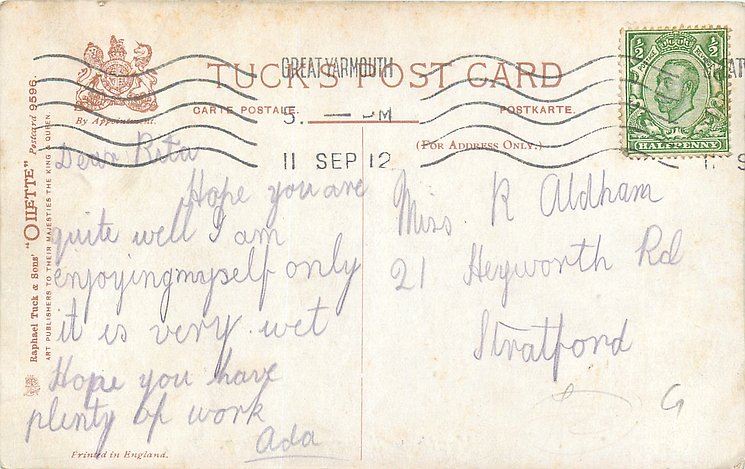 GREAT YARMOUTH
TUCK'S POST CARD
CARTE POSTALE. POSTKARTE.
By Appointment.
(FOR ADDRESS ONLY.)
11 SEP 12
½ ½
HALFPENNY
Raphael Tuck & Sons' "OILETTE" Postcard 9596.
ART PUBLISHERS TO THEIR MAJESTIES THE KING & QUEEN.
Dear Rita
Hope you are
quite well I am
enjoying myself only
it is very wet
Hope you have
plenty of work
Ada
Miss R Aldham
21 Heyworth Rd
Stratford
G
Printed in England.